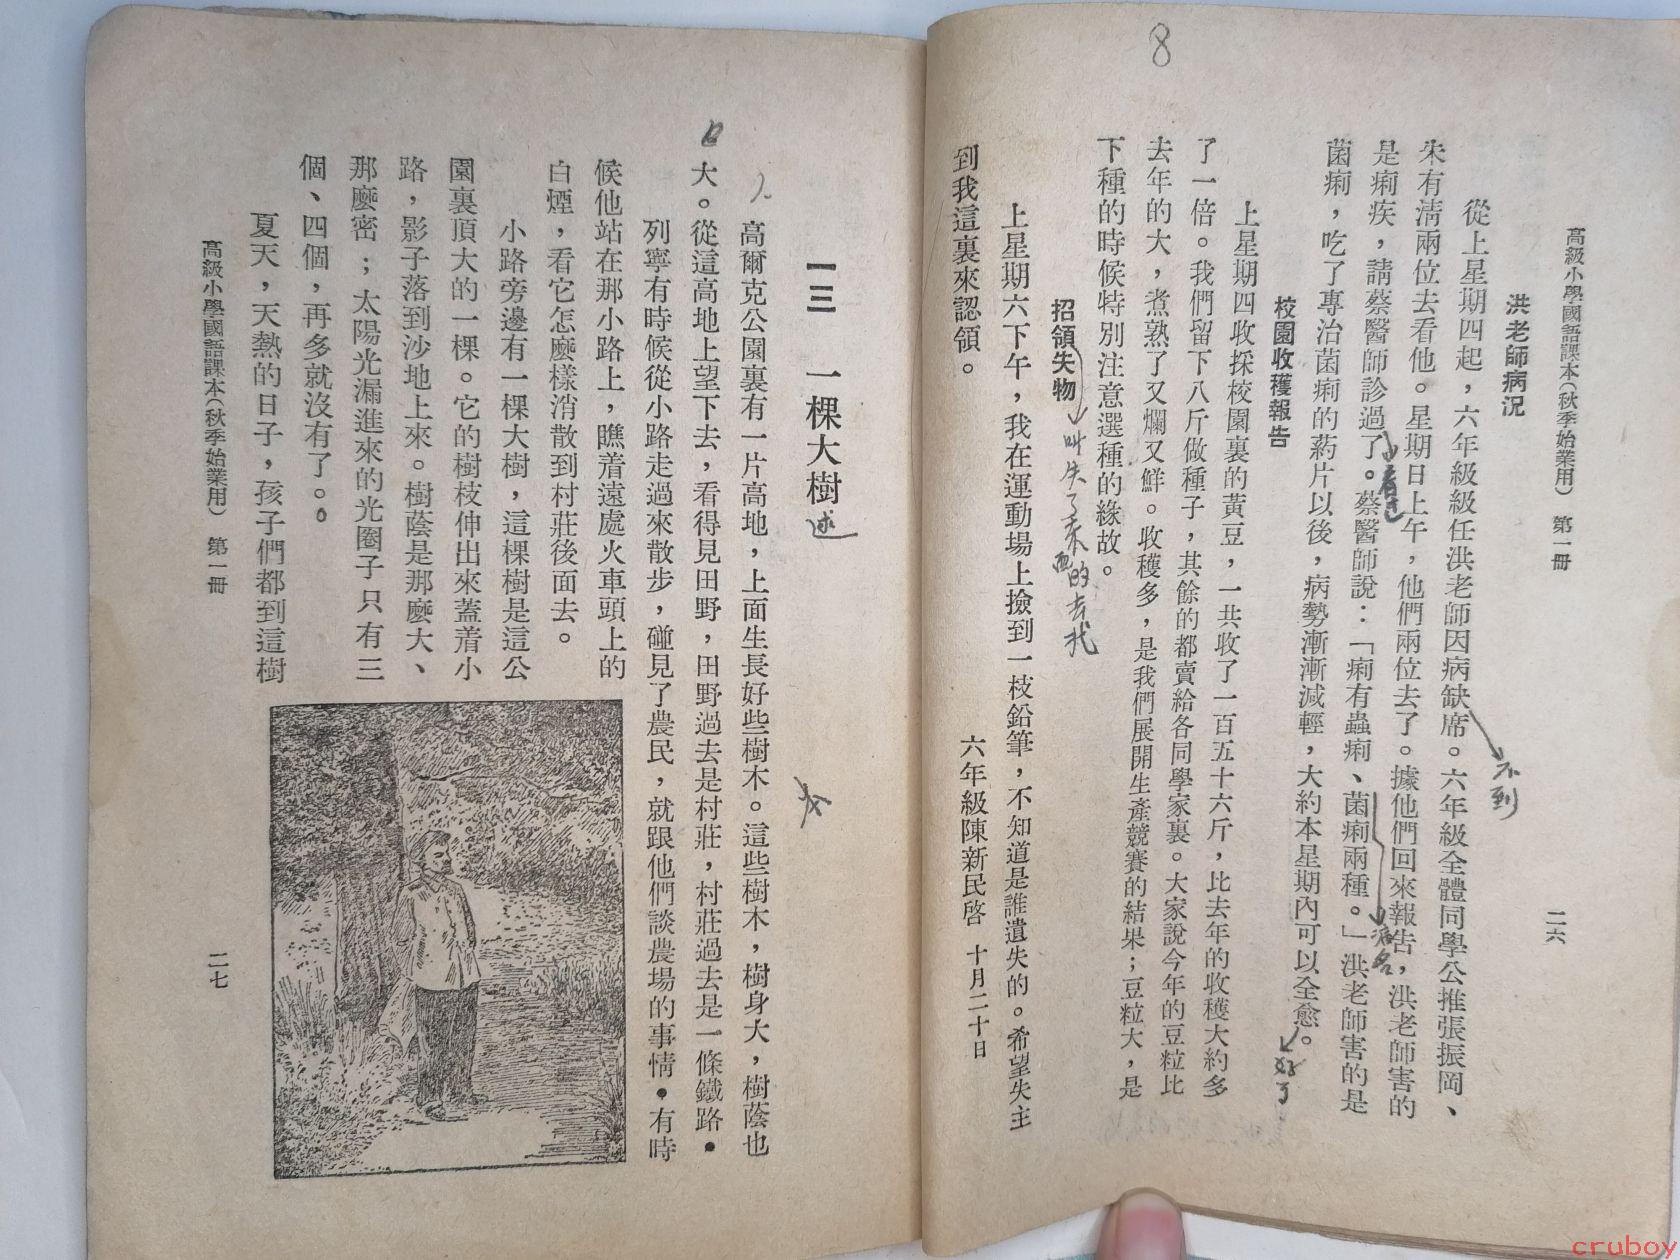 8
高級小學國語課本(秋季始業用) 第一冊
二六
洪老師病況
從上星期四起，六年級級任洪老師因病缺席。六年級全體同學公推張振岡、
朱有淸兩位去看他。星期日上午，他們兩位去了。據他們回來報告，洪老師害的
是痢疾，請蔡醫師診過了。蔡醫師說：「痢有蟲痢、菌痢兩種。」洪老師害的是
菌痢，吃了專治菌痢的葯片以後，病勢漸漸減輕，大約本星期內可以全愈。
不到
看过
病名
好了
校園收穫報告
上星期四收採校園裏的黃豆，一共收了一百五十六斤，比去年的收穫大約多
了一倍。我們留下八斤做種子，其餘的都賣給各同學家裏。大家說今年的豆粒比
去年的大，煮熟了又爛又鮮。收穫多，是我們展開生產競賽的結果；豆粒大，是
下種的時候特別注意選種的緣故。
招領失物
叫失了東西的去找
上星期六下午，我在運動場上撿到一枝鉛筆，不知道是誰遺失的。希望失主
到我這裏來認領。
六年級陳新民啓 十月二十日
一三 一棵大樹
述
高爾克公園裏有一片高地，上面生長好些樹木。這些樹木，樹身大，樹蔭也
大。從這高地上望下去，看得見田野，田野過去是村莊，村莊過去是一條鐵路。
列寧有時候從小路走過來散步，碰見了農民，就跟他們談農場的事情。有時
候他站在那小路上，瞧着遠處火車頭上的
白煙，看它怎麼樣消散到村莊後面去。
小路旁邊有一棵大樹，這棵樹是這公
園裏頂大的一棵。它的樹枝伸出來蓋着小
路，影子落到沙地上來。樹蔭是那麼大、
那麼密；太陽光漏進來的光圈子只有三
個、四個，再多就沒有了。
夏天，天熱的日子，孩子們都到這樹
高級小學國語課本(秋季始業用) 第一冊
二七
cruboy